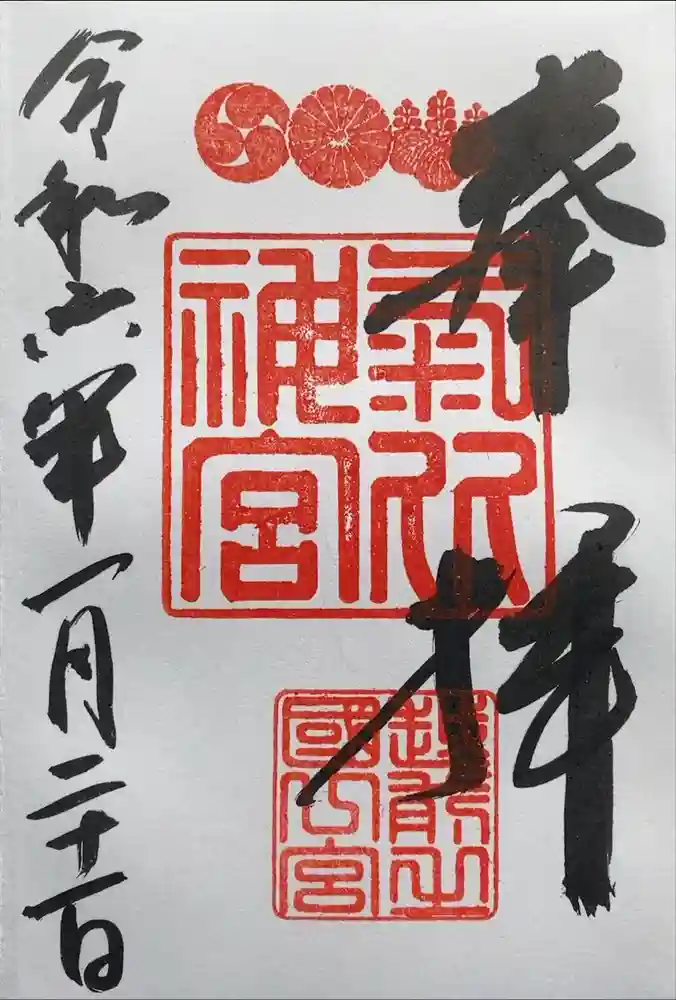 奉拝
氣比
神宮
越前之
國 宮
令和六年一月二十一日